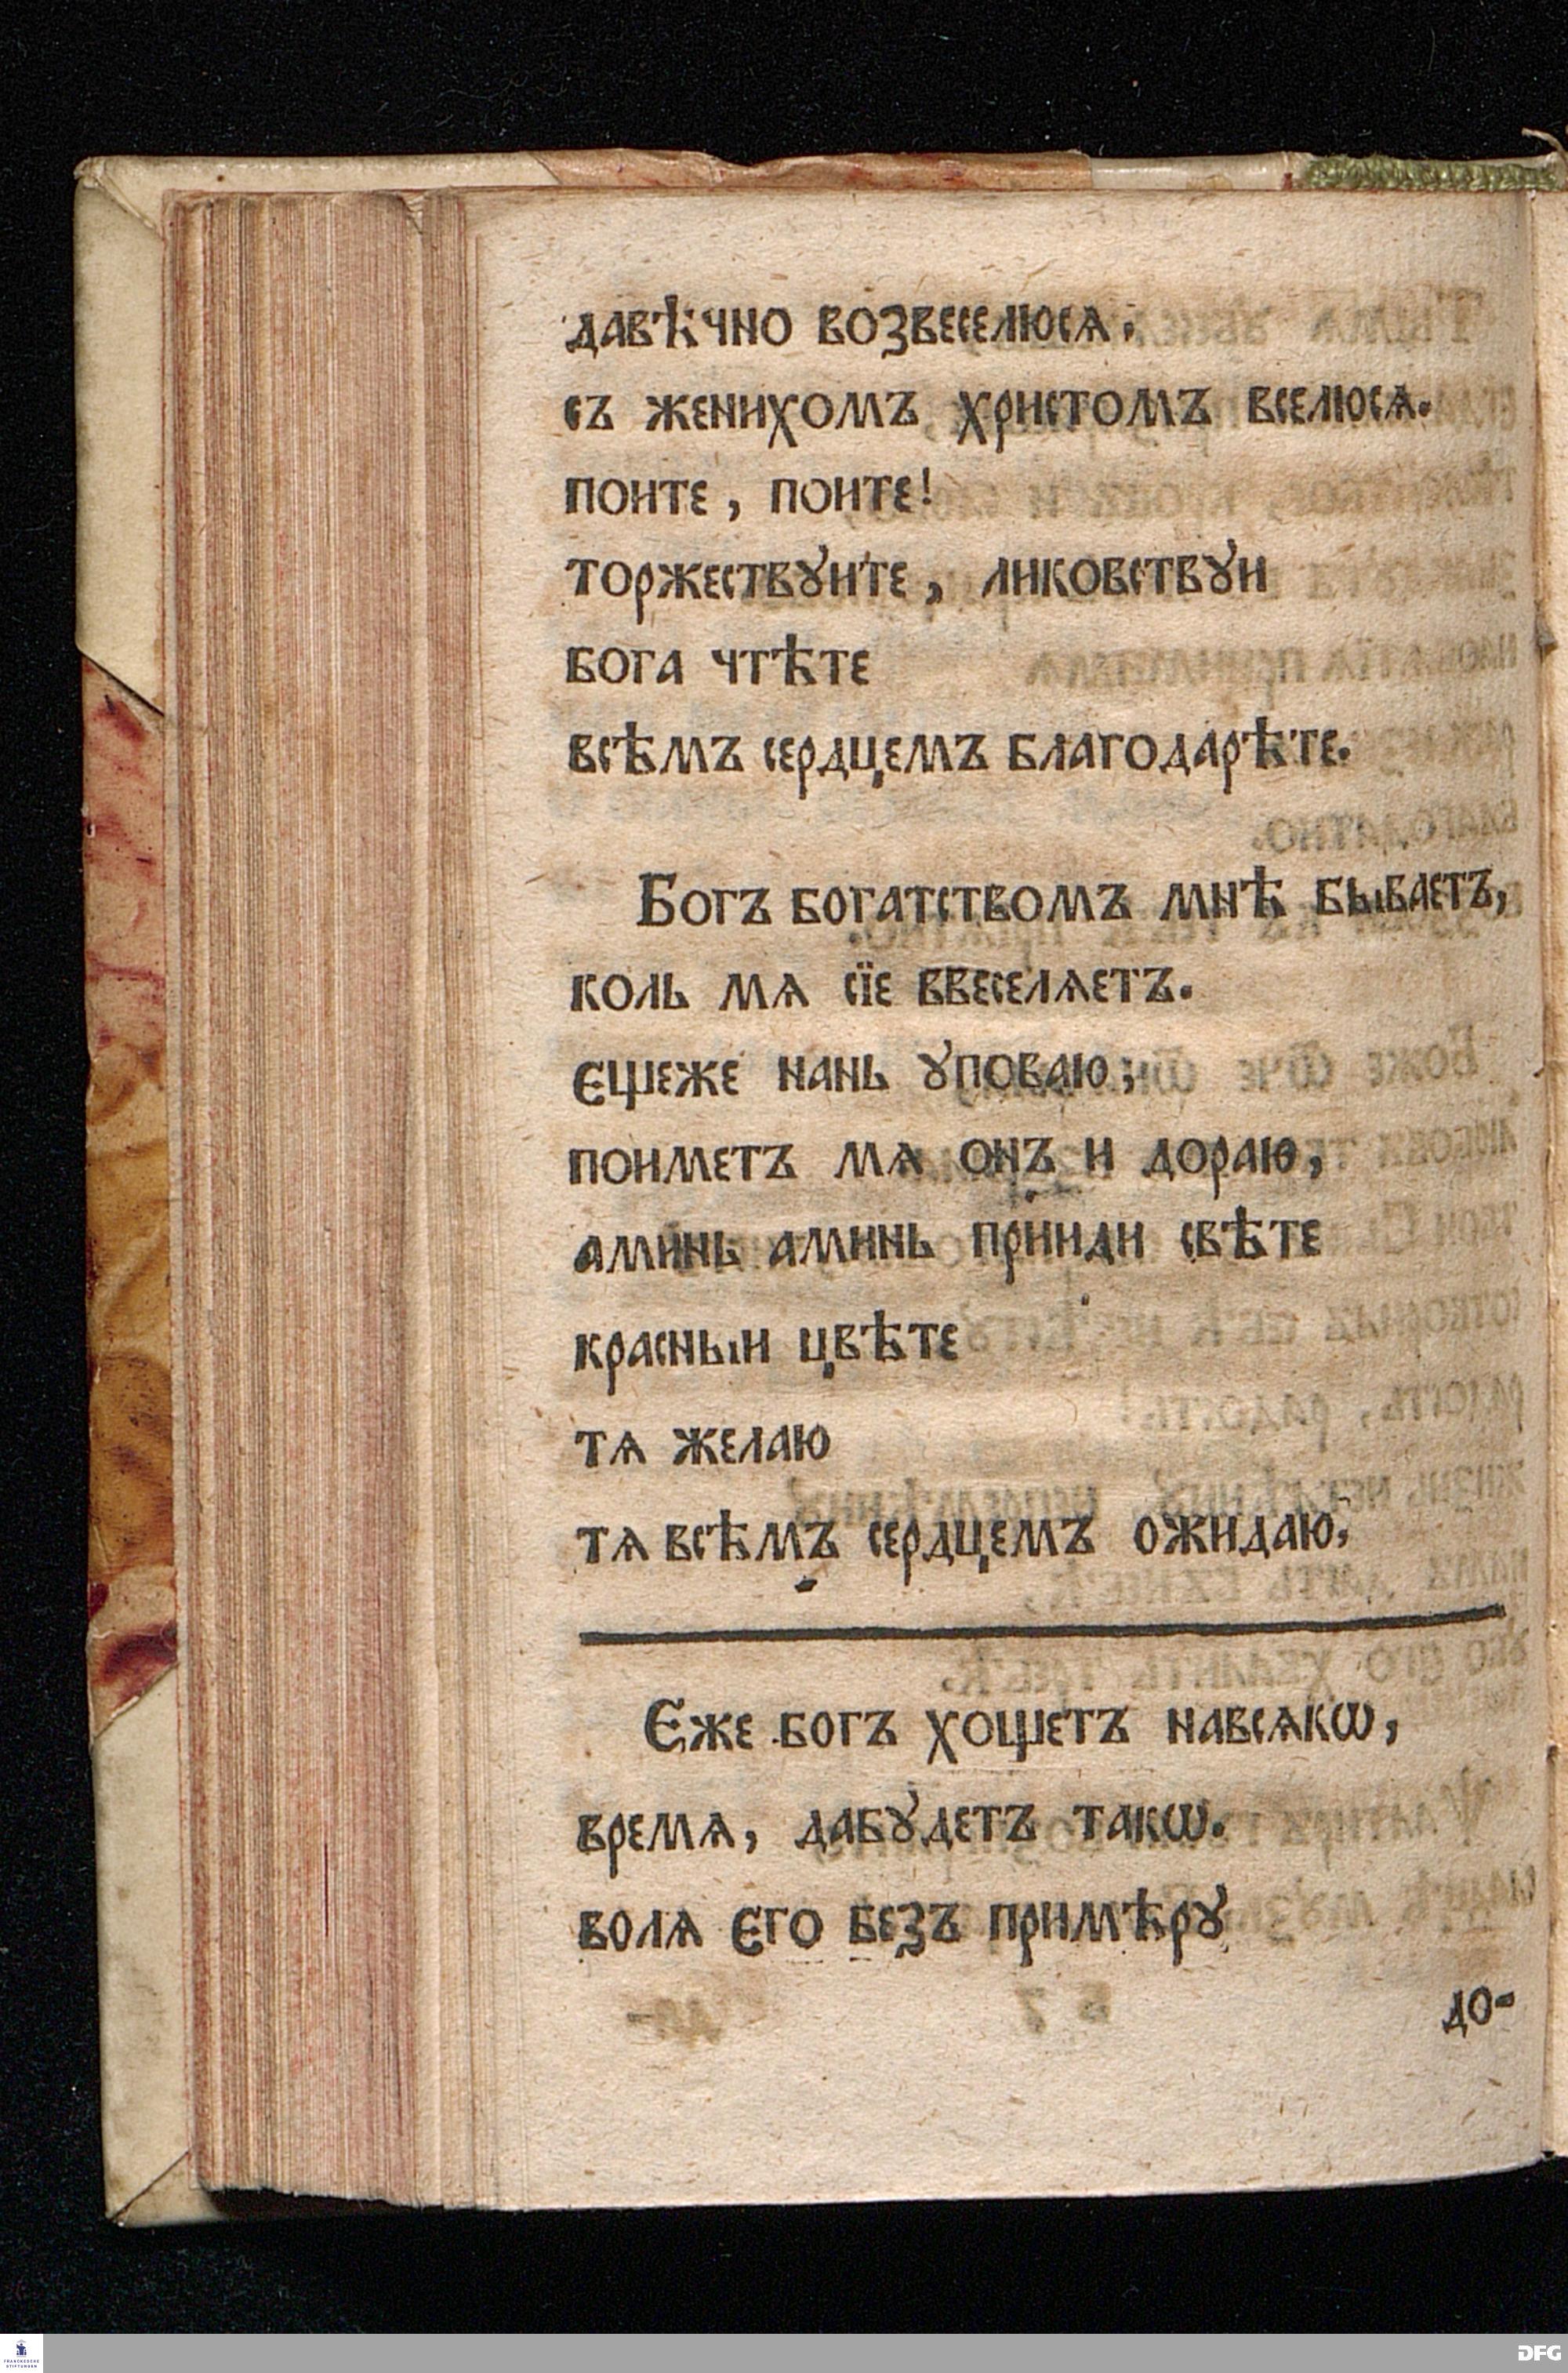 давѣчно возвеселюсѧ;
съ женихомъ христомъ вселюсѧ.
поите, поите!
торжествꙋите, ликовствꙋи
бога чтѣте
всѣмъ сердцемъ благодарѣте.
Богъ богатствомъ мнѣ бываетъ,
коль мѧ сїе ввеселѧетъ.
єщеже нань ꙋповаю;
поиметъ мѧ онъ и дораю,
аминь аминь прииди свѣте
красныи цвѣте
тѧ желаю
тѧ всѣмъ сердцемъ ожидаю;
Єже богъ хощетъ навсѧкѡ,
времѧ, дабꙋдетъ такѡ.
волѧ єго безъ примѣрꙋ
до-
FRANCKESCHE
STIFTUNGEN
DFG